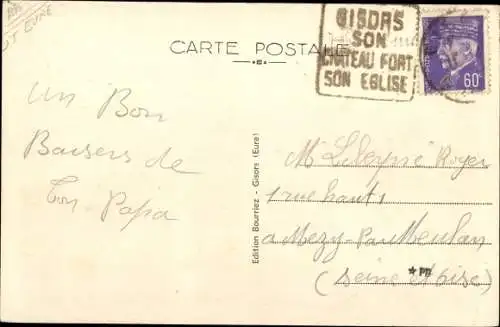 GISORS
SON
CHATEAU FORT
SON EGLISE
60c
CARTE POSTALE
Un Bon
Baisers de
Ton Papa
Edition Bourriez - Gisors (Eure)
Mr Roger
1 rue haute
a Mezy-Par Meulan
(Seine et Oise)